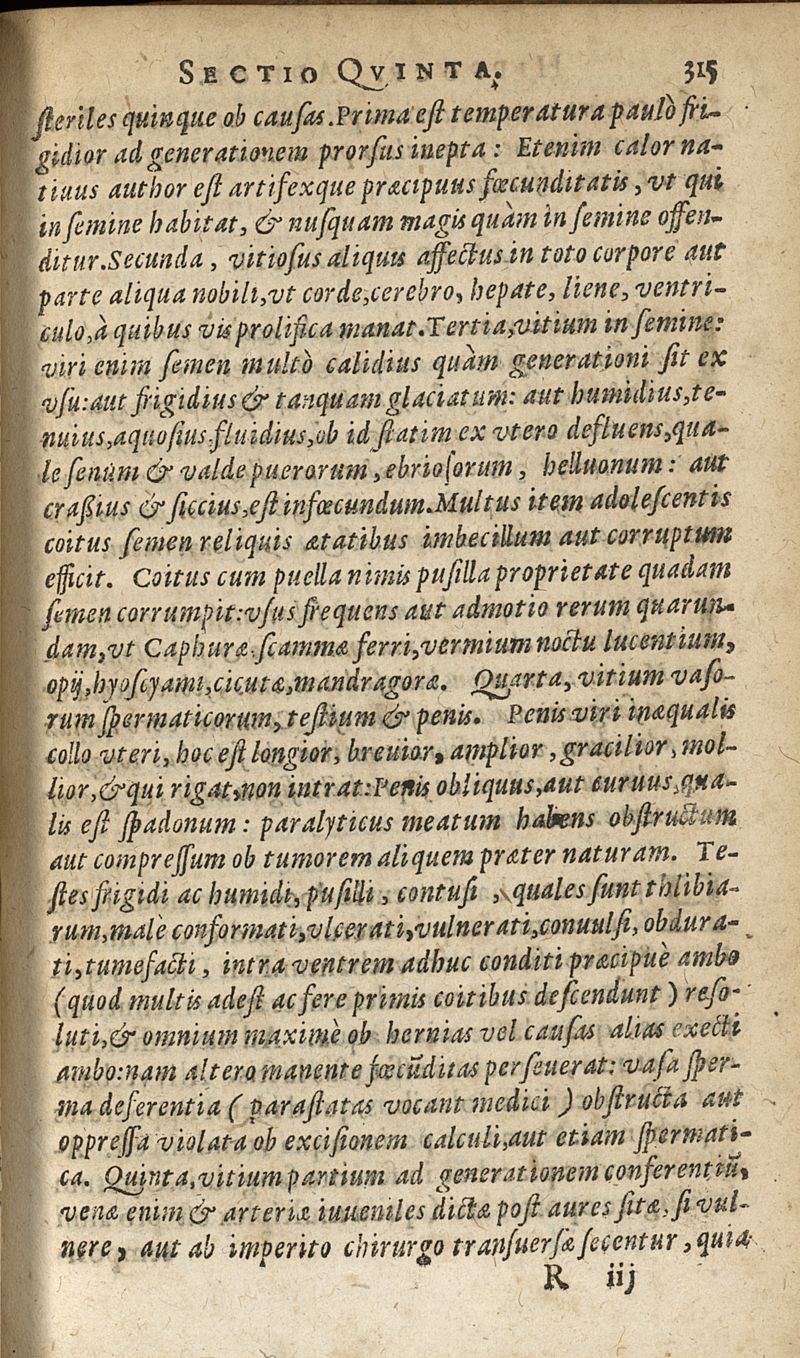 SECTIO QVINTA. 315
ſteriles quinque ob cauſas. Prima eſt temperatura paulò fri-
gidior ad generationem prorſus inepta : Etenim calor na-
tiuus author eſt artifexque præcipuus fœcunditatis, vt qui
in ſemine habitat, & nuſquam magis quàm in ſemine offen-
ditur. Secunda, vitioſus aliquis affectus in toto corpore aut
parte aliqua nobili, vt corde, cerebro, hepate, liene, ventri-
culo, à quibus vis prolifica manat. Tertia, vitium in ſemine:
viri enim ſemen multò calidius quàm generationi ſit ex
vſu: aut frigidius & tanquam glaciatum: aut humidius, te-
nuius, aquoſius, fluidius, ob id ſtatim ex vtero defluens, qua-
le ſenum & valde puerorum, ebrioſorum, helluonum: aut
craßius & ſiccius, eſt infœcundum. Multus item adoleſcentis
coitus ſemen reliquis ætatibus imbecillum aut corruptum
efficit. Coitus cum puella nimis puſilla proprietate quadam
ſemen corrumpit: vſus frequens aut admotio rerum quarun-
dam, vt Caphuræ, ſcammæ ferri, vermium noctu lucentium,
opij, hyoſcyami, cicutæ, mandragoræ. Quarta, vitium vaſo-
rum ſpermaticorum, teſtium & penis. Penis viri inæqualis
collo vteri, hoc eſt longior, breuior, amplior, gracilior, mol-
lior, & qui rigat, non intrat: Penis obliquus, aut curuus, qua-
lis eſt ſpadonum: paralyticus meatum habens obſtructum
aut compreſſum ob tumorem aliquem præter naturam. Te-
ſtes frigidi ac humidi, puſilli, contuſi, quales ſunt thlibia-
rum, malè conformati, vlcerati, vulnerati, conuulſi, obdura-
ti, tumefacti, intra ventrem adhuc conditi præcipuè ambo
(quod multis adeſt ac fere primis coitibus deſcendunt) reſo-
luti, & omnium maximè ob hernias vel cauſas alias execti
ambo: nam altero manente fœcũditas perſeuerat: vaſa ſper-
ma deferentia ( paraſtatas vocant medici ) obſtructa aut
oppreſſa violata ob exciſionem calculi, aut etiam ſpermati-
ca. Quinta, vitium partium ad generationem conferentiũ,
venæ enim & arteriæ iuueniles dictæ poſt aures ſitæ, ſi vul-
nere, aut ab imperito chirurgo tranſuerſæ ſecentur, quia
R iij